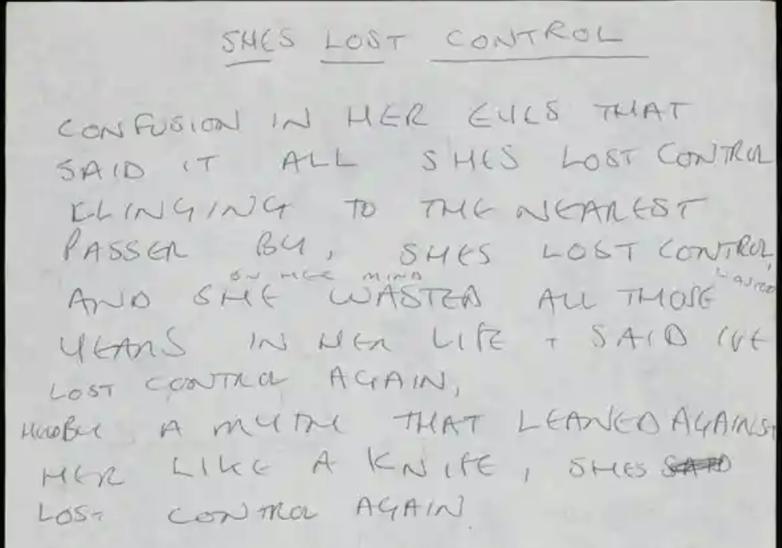 SHES LOST CONTROL
CONFUSION IN HER EYES THAT
SAID IT ALL SHES LOST CONTROL
CLINGING TO THE NEAREST
PASSER BY, SHES LOST CONTROL,
ON HER MIND
WASTED
AND SHE WASTED ALL THOSE
YEARS IN HER LIFE + SAID IVE
LOST CONTROL AGAIN,
A MYTH THAT LEANED AGAINST
HER LIKE A KNIFE, SHES
LOST CONTROL AGAIN